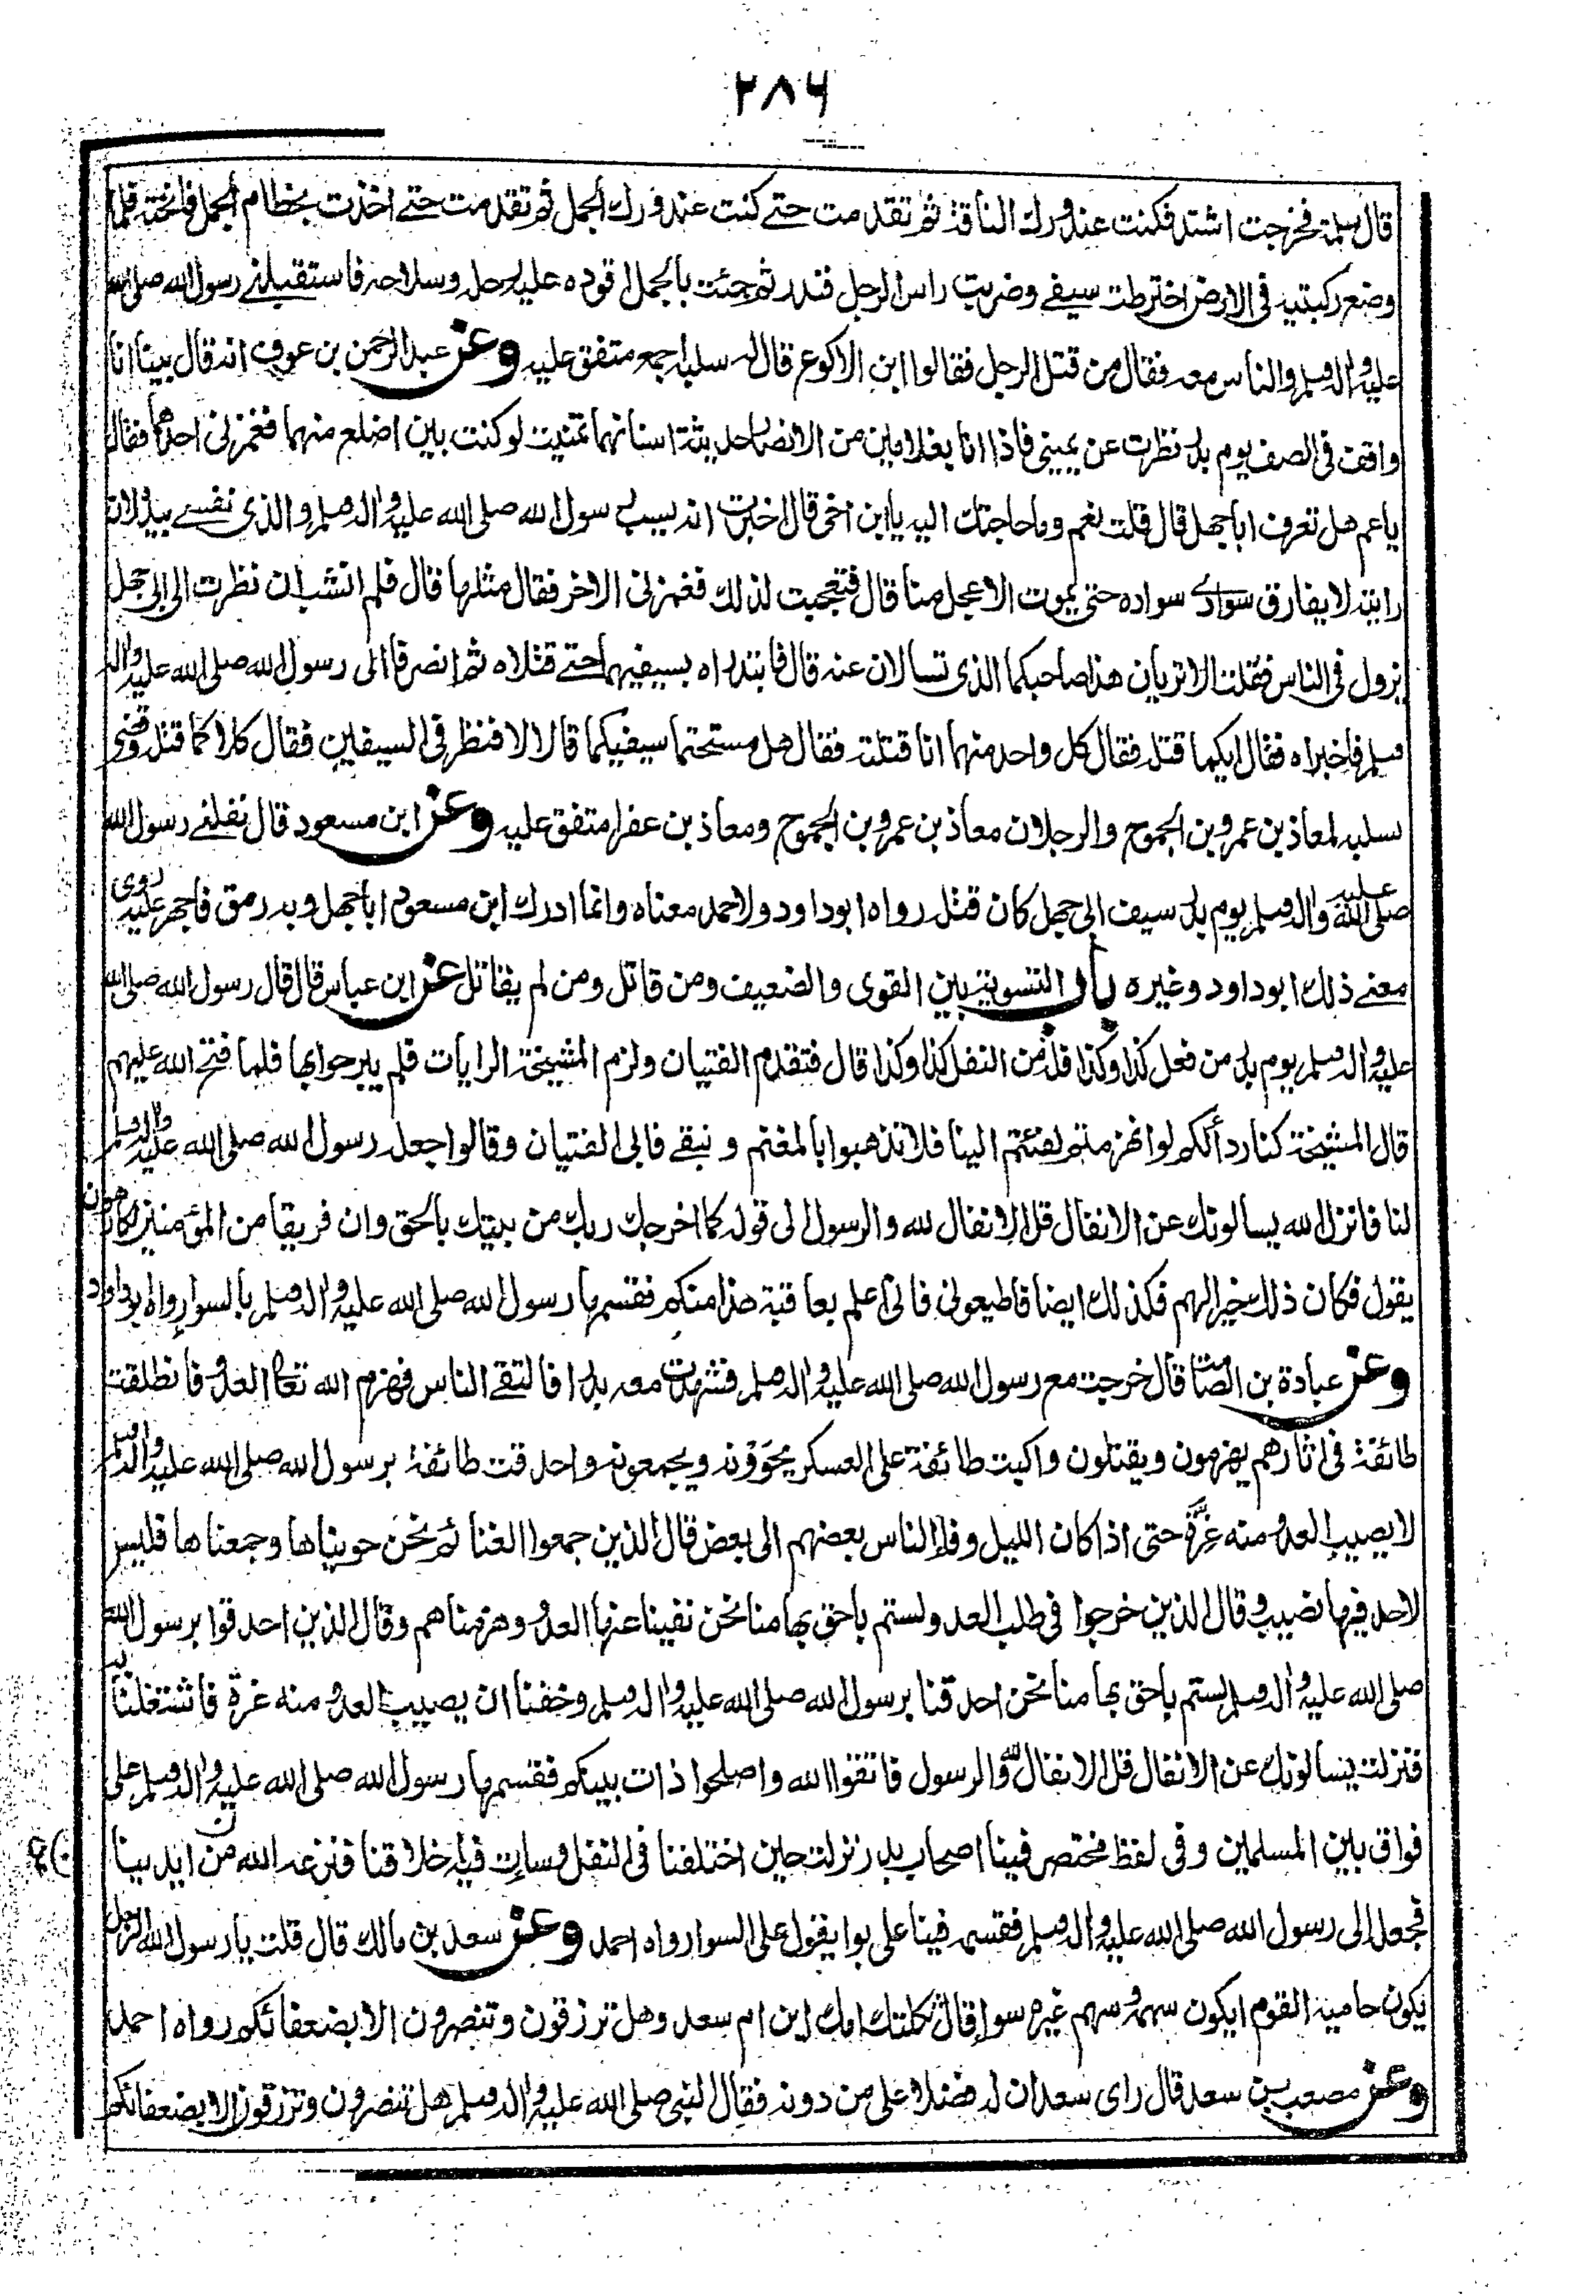 ٢٨٦
قال سلمة فخرجت اشتد فكنت عند ورك الناقة ثم تقدمت حتے كنت عند ورك الجمل ثم تقدمت حتے اخذت بخطام الجمل فانخته فلما
وضع ركبتيه فى الارض اخترطت سيفے وضربت راس الرجل فندر ثم جئت بالجمل اقوده عليه رحله وسلاحه فاستقبلنے رسول الله صلى الله
عليه واله وسلم والناس معه فقال من قتل الرجل فقالوا ابن الاكوع قال له سلبه اجمع متفق عليه وعن عبد الرحمن بن عوف انه قال بينا انا
واقف فى الصف يوم بدر نظرت عن يمينى فاذا انا بغلامين من الانصار حديثة اسنانهما تمنيت لو كنت بين اضلع منهما فغمزنى احدهما فقال
يا عم هل تعرف ابا جهل قال قلت نعم وما حاجتك اليه يا ابن اخى قال اخبرت انه يسب رسول الله صلى الله عليه واله وسلم والذى نفسے بيده لان
رايته لا يفارق سوادے سواده حتى يموت الاعجل منا قال فتعجبت لذلك فغمزنى الاخر فقال مثلها قال فلم انشب ان نظرت الى ابى جهل
يزول فى الناس فقلت الا تريان هذا صاحبكما الذى تسالان عنه قال فابتدراه بسيفيهما حتے قتلاه ثم انصرفا الى رسول الله صلى الله عليه واله
وسلم فاخبراه فقال ايكما قتله فقال كل واحد منهما انا قتلته فقال هل مستحتما سيفيكما قالا لا فنظر فى السيفين فقال كلاكما قتله وقضى
سلبه لمعاذ بن عمرو بن الجموح والرجلان معاذ بن عمرو بن الجموح ومعاذ بن عفراء متفق عليه وعن ابن مسعود قال نفلنے رسول الله
صلى الله عليه واله وسلم يوم بدر سيف ابى جهل كان قتله رواه ابو داود ولاحمد معناه وانما ادرك ابن مسعود ابا جهل وبه رمق فاجهز عليه روى
معنے ذلك ابو داود وغيره باب التسوية بين القوى والضعيف ومن قاتل ومن لم يقاتل عن ابن عباس قال قال رسول الله صلى الله
عليه واله وسلم يوم بدر من فعل كذا وكذا فله من النفل كذا وكذا قال فتقدم الفتيان ولزم المشيخة الرايات فلم يبرحوا بها فلما فتح الله عليهم
قال المشيخة كنا ردأ لكم لو انهزمتم لفئتم الينا فلا تذهبوا بالمغنم ونبقے فابى الفتيان وقالوا جعله رسول الله صلى الله عليه واله وسلم
لنا فانزل الله يسالونك عن الانفال قل الانفال لله والرسول الى قوله كما اخرجك ربك من بيتك بالحق وان فريقا من المؤمنين لكارهون
يقول فكان ذلك خيرا لهم فكذلك ايضا فاطيعونى فانى اعلم بعاقبة هذا منكم فقسمها رسول الله صلى الله عليه واله وسلم بالسواء رواه ابو داود
وعن عبادة بن الصامت قال خرجت مع رسول الله صلى الله عليه واله وسلم فشهدت معه بدرا فالتقے الناس فهزم الله تعالى العدو فانطلقت
طائفة فى اثارهم يهزمون ويقتلون واكبت طائفة على العسكر يحوونه ويجمعونه واحدقت طائفة برسول الله صلى الله عليه واله وسلم
لا يصيب العدو منه غرة حتى اذا كان الليل وفاء الناس بعضهم الى بعض قال الذين جمعوا الغنائم نحن حويناها وجمعناها فليس
لاحد فيها نصيب وقال الذين خرجوا فى طلب العدو لستم باحق بها منا نحن نفينا عنها العدو وهزمناهم وقال الذين احدقوا برسول الله
صلى الله عليه واله وسلم لستم باحق بها منا نحن احدقنا برسول الله صلى الله عليه واله وسلم وخفنا ان يصيب العدو منه غرة فاشتغلنا به
فنزلت يسالونك عن الانفال قل الانفال لله والرسول فاتقوا الله واصلحوا ذات بينكم فقسمها رسول الله صلى الله عليه واله وسلم على
فواق بين المسلمين وفى لفظ مختصر فينا اصحاب بدر نزلت حين اختلفنا فى النفل وساءت فيه اخلاقنا فنزعه الله من ايدينا
فجعله الى رسول الله صلى الله عليه واله وسلم فقسمه فينا على بواء يقول على السواء رواه احمد وعن سعد بن مالك قال قلت يا رسول الله الرجل
يكون حامية القوم ايكون سهمه وسهم غيره سواء قال ثكلتك امك ابن ام سعد وهل ترزقون وتنصرون الا بضعفائكم رواه احمد
وعن مصعب بن سعد قال راى سعد ان له فضلا على من دونه فقال النبى صلى الله عليه واله وسلم هل تنصرون وترزقون الا بضعفائكم